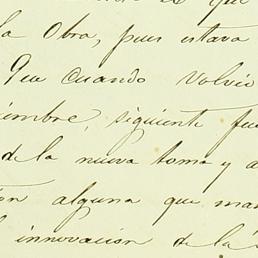 que
la Obra, pues estava
Que cuando volvió
iembre, siguiente fue
de la nueva toma y a
ton alguna que man
innovacion de la